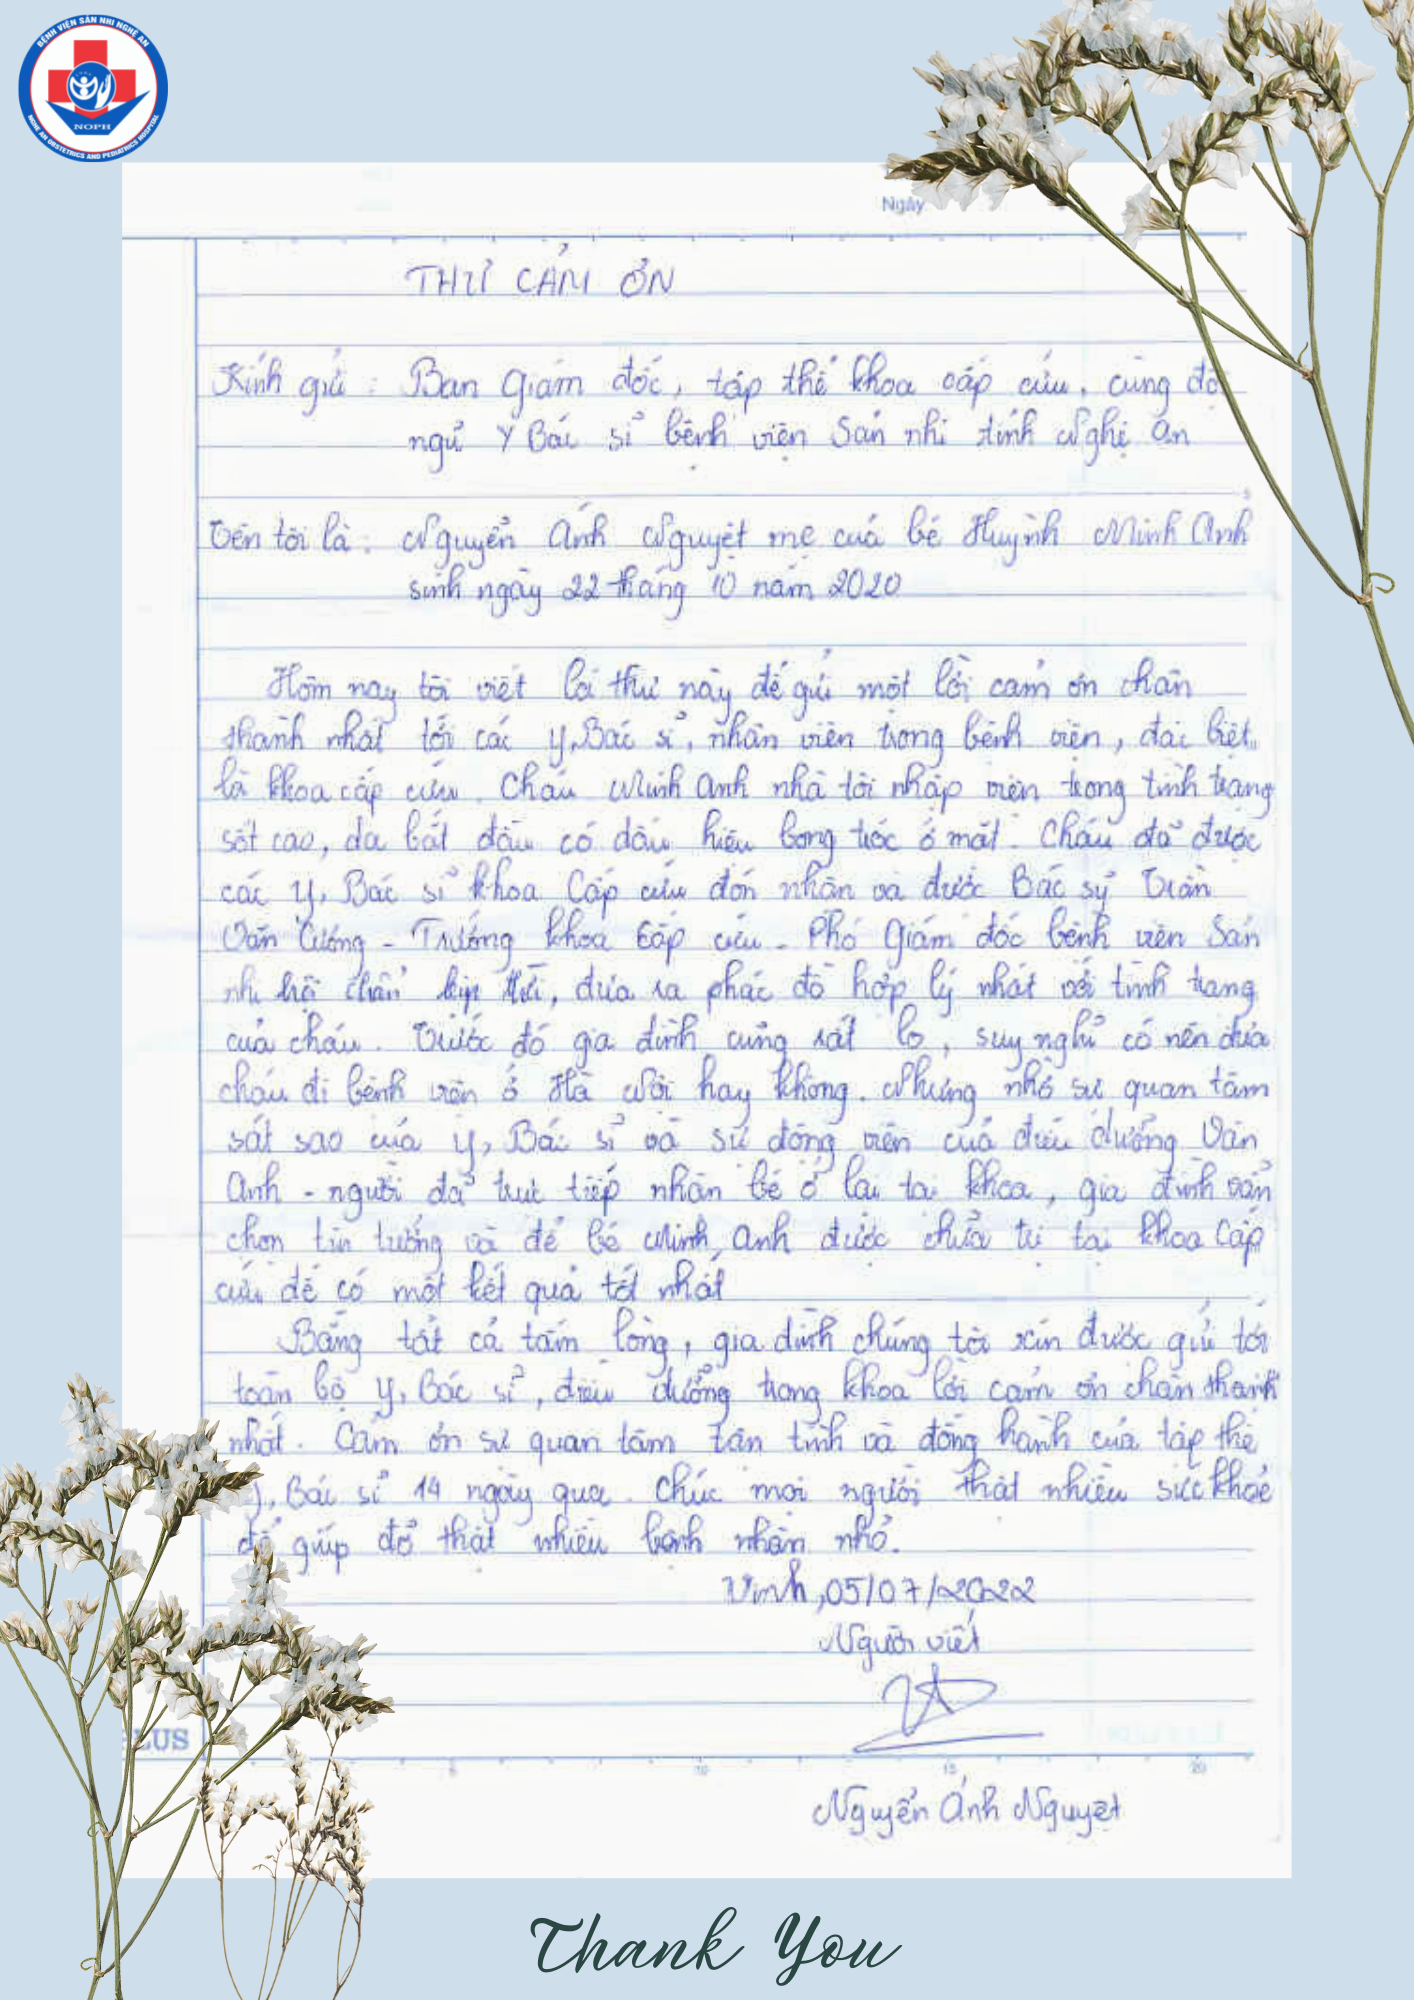 BỆNH VIỆN SẢN NHI NGHỆ AN
NOPH
NGHE AN OBSTETRICS AND PEDIATRICS HOSPITAL
Ngày
THƯ CẢM ƠN
Kính gửi : Ban Giám đốc, tập thể khoa cấp cứu, cùng đội
ngũ Y Bác sĩ bệnh viện Sản nhi tỉnh Nghệ An
Tên tôi là : Nguyễn Ánh Nguyệt mẹ của bé Huỳnh Minh Anh
sinh ngày 22 tháng 10 năm 2020
Hôm nay tôi viết lá thư này để gửi một lời cảm ơn chân
thành nhất tới các y, Bác sĩ, nhân viên trong bệnh viện, đặc biệt
là khoa cấp cứu. Cháu Minh Anh nhà tôi nhập viện trong tình trạng
sốt cao, da bắt đầu có dấu hiệu bong tróc ở mắt. Cháu đã được
các y, Bác sĩ khoa Cấp cứu đón nhận và được Bác sỹ Trần
Văn Cương - Trưởng khoa Cấp cứu - Phó Giám đốc bệnh viện Sản
nhi hội chẩn kịp thời, đưa ra phác đồ hợp lý nhất với tình trạng
của cháu. Trước đó gia đình cũng rất lo, suy nghĩ có nên đưa
cháu đi bệnh viện ở Hà Nội hay không. Nhưng nhờ sự quan tâm
sát sao của y, Bác sĩ và sự động viên của điều dưỡng Vân
Anh - người đã trực tiếp nhận bé ở lại tại khoa, gia đình vẫn
chọn tin tưởng và để bé Minh Anh được chữa trị tại khoa Cấp
cứu để có một kết quả tốt nhất
Bằng tất cả tấm lòng, gia đình chúng tôi xin được gửi tới
toàn bộ y, Bác sĩ, điều dưỡng trong khoa lời cảm ơn chân thành
nhất. Cảm ơn sự quan tâm tận tình và đồng hành của tập thể
y, Bác sĩ 14 ngày qua. Chúc mọi người thật nhiều sức khỏe
để giúp đỡ thật nhiều bệnh nhân nhỏ.
Vinh, 05/07/2022
Người viết
LUS
5 10 15 20
Nguyễn Ánh Nguyệt
Thank You